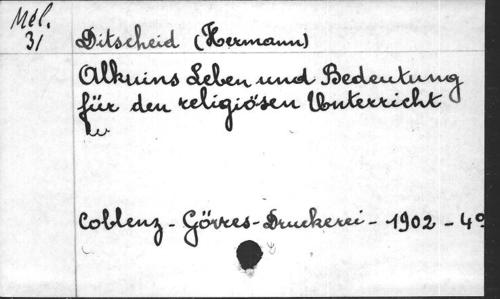 Mél.
31
Ditscheid (Hermann)
Alkuins Leben und Bedeutung
für den religiösen Unterricht
Coblenz - Görres-Druckerei - 1902 - 4º